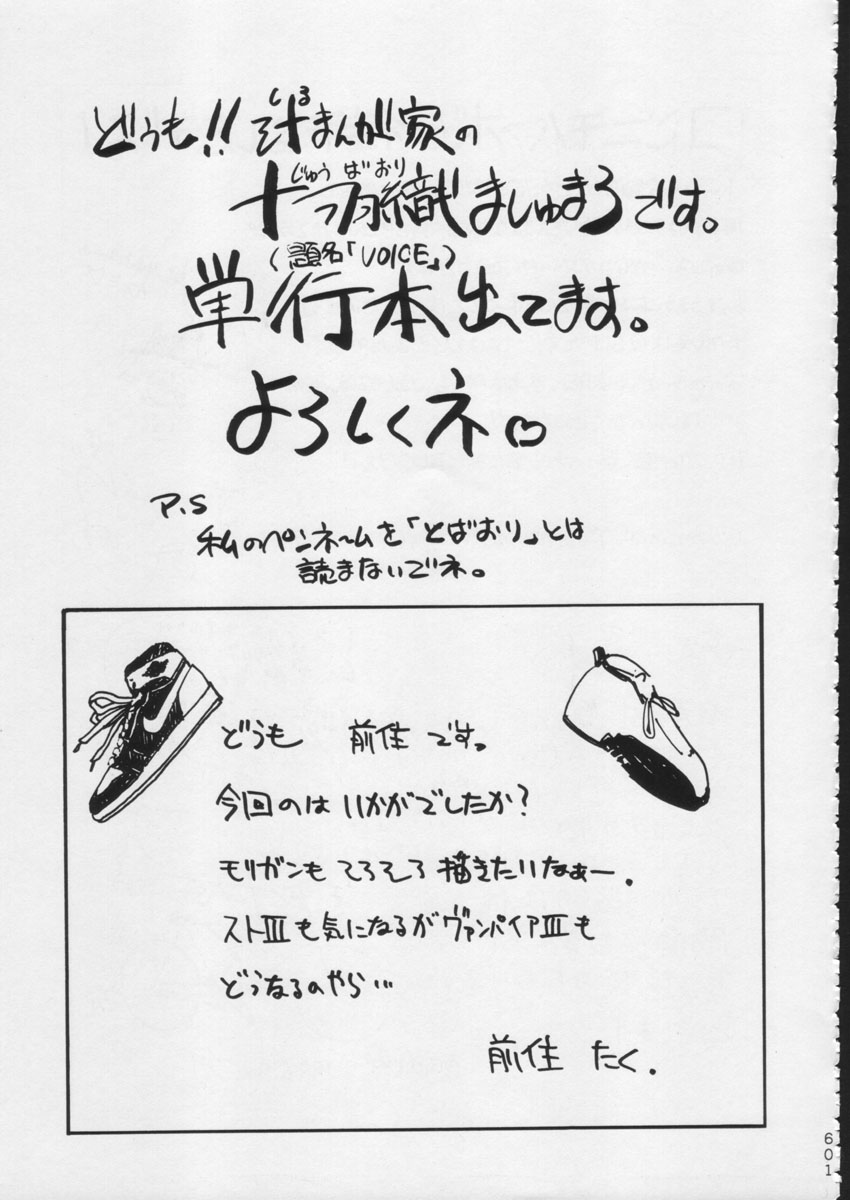 どうも!! 汁まんが家の
しる
十羽織ましゅまろです。
じゅう ばおり
(題名「VOICE」)
単行本出てます。
よろしくネ♡
P.S
私のペンネームを「とばおり」とは
読まないでネ。
どうも 前住です。
今回のはいかがでしたか?
モリガンもそろそろ描きたいなぁー.
ストⅢも気になるがヴァンパイアⅢも
どうなるのやら…
前住 たく.
601